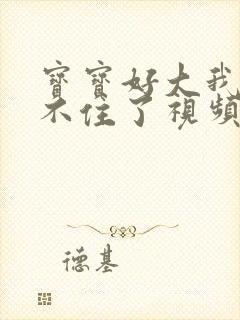 寶寶好大我
不住了視頻
德基